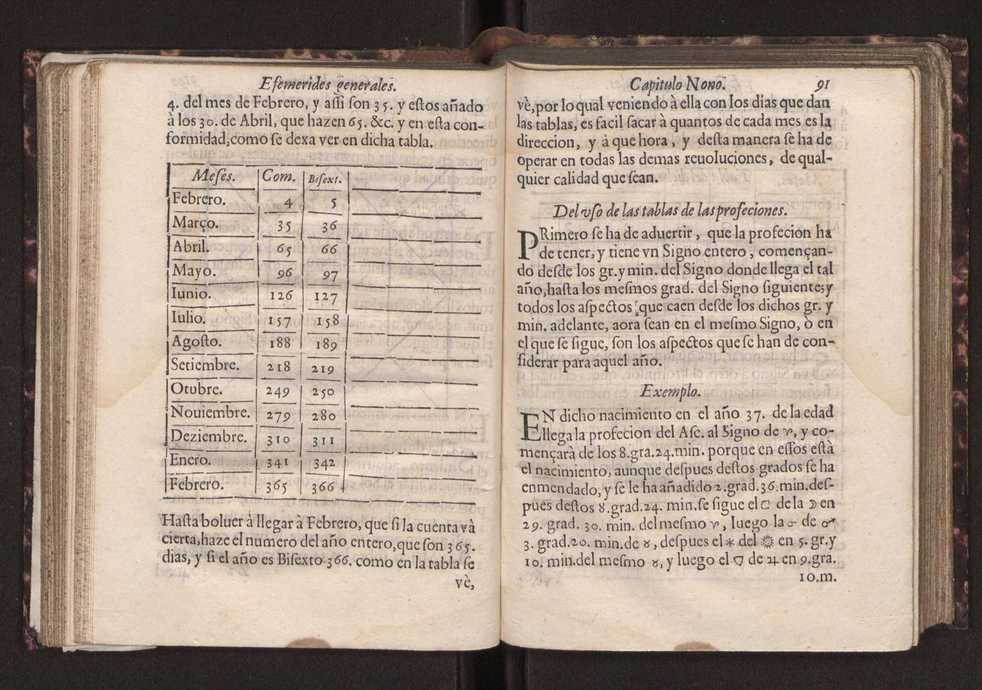 Efemerides generales.
4. del mes de Febrero, y aſsi ſon 35. y eſtos añado
à los 30. de Abril, que hazen 65. &c. y en eſta con-
formidad, como ſe dexa ver en dicha tabla.
Meſes. Com. Biſext.
Febrero. 4 5
Março. 35 36
Abril. 65 66
Mayo. 96 97
Iunio. 126 127
Iulio. 157 158
Agoſto. 188 189
Setiembre. 218 219
Otubre. 249 250
Nouiembre. 279 280
Deziembre. 310 311
Enero. 341 342
Febrero. 365 366
Haſta boluer à llegar à Febrero, que ſi la cuenta và
cierta, haze el numero del año entero, que ſon 365.
dias, y ſi el año es Biſexto 366. como en la tabla ſe
vè,
Capitulo Nono. 91
vè, por lo qual veniendo à ella con los dias que dan
las tablas, es facil ſacar à quantos de cada mes es la
direccion, y à que hora, y deſta manera ſe ha de
operar en todas las demas reuoluciones, de qual-
quier calidad que ſean.
Del vſo de las tablas de las profeciones.
PRimero ſe ha de aduertir, que la profecion ha
de tener, y tiene vn Signo entero, començan-
do deſde los gr. y min. del Signo donde llega el tal
año, haſta los meſmos grad. del Signo ſiguiente; y
todos los aſpectos que caen deſde los dichos gr. y
min. adelante, aora ſean en el meſmo Signo, ò en
el que ſe ſigue, ſon los aſpectos que ſe han de con-
ſiderar para aquel año.
Exemplo.
EN dicho nacimiento en el año 37. de la edad
llega la profecion del Aſc. al Signo de ♈, y co-
mençarà de los 8. gra. 24. min. porque en eſſos eſtà
el nacimiento, aunque deſpues deſtos grados ſe ha
enmendado, y ſe le ha añadido 2. grad. 36. min. deſ-
pues deſtos 8. grad. 24. min. ſe ſigue el □ de la ☽ en
29. grad. 30. min. del meſmo ♈, luego la ☍ de ♂
3. grad. 20. min. de ♉, deſpues el ⚹ del ☼ en 5. gr. y
10. min. del meſmo ♉, y luego el ▽ de ♃ en 9. gra.
10. m.